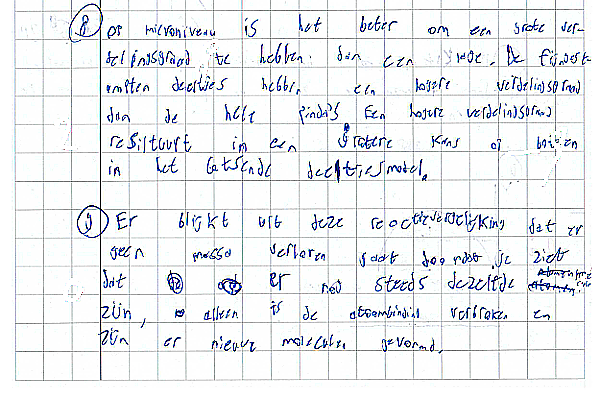 8 op microniveau is het beter om een grote ver-
delingsgraad te hebben dan een lage. De fijnge
deeltjes hebben een hogere verdelingsgraad
dan de hele pinda's Een hogere verdelingsgraad
resulteurt in een grotere kans op botsen
in het botsende deeltjesmodel.
9 Er blijkt uit deze reactievergelijking dat er
geen massa verloren gaat doordat je ziet
dat er nog steeds dezelfde
zijn, alleen is de atoombinding verbroken en
zijn er nieuwe moleculen gevormd.